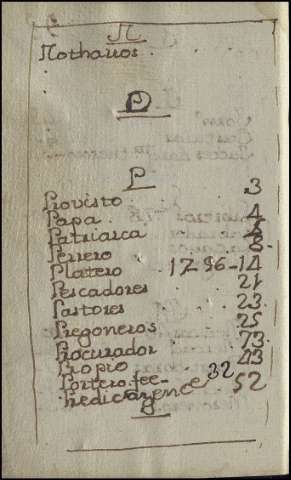 N
Notharios.
D
P
Provisto 3
Papa. 4
Patriarca 6
Perrero 8.
Platero 12-96-14
Pescadores 21
Pastores 23.
Pregoneros 25
Procurador 73.
Propio 43
Portero fee- 32
Predicarence 52